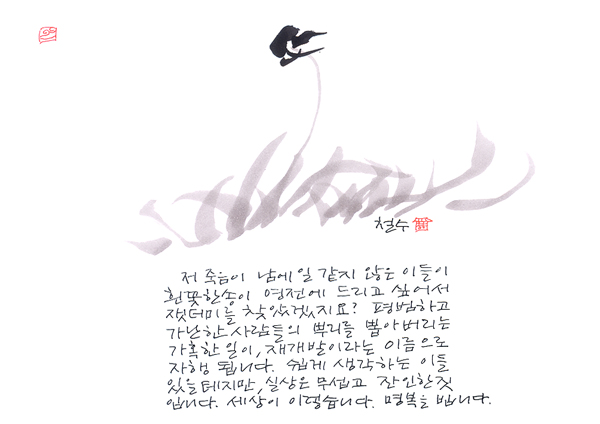 철수
저 죽음이 남에 일 같지 않은 이들이
흰꽃한송이 영전에 드리고 싶어서
잿더미를 찾았겠지요? 평범하고
가난한 사람들의 뿌리를 뽑아버리는
가혹한 일이, 재개발이라는 이름으로
자행 됩니다. 쉽게 생각하는 이들
있을테지만, 실상은 무섭고 잔인한것
입니다. 세상이 이렇습니다. 명복을 빕니다.